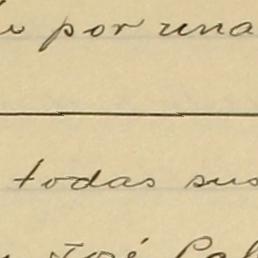 por una
todas sus
José